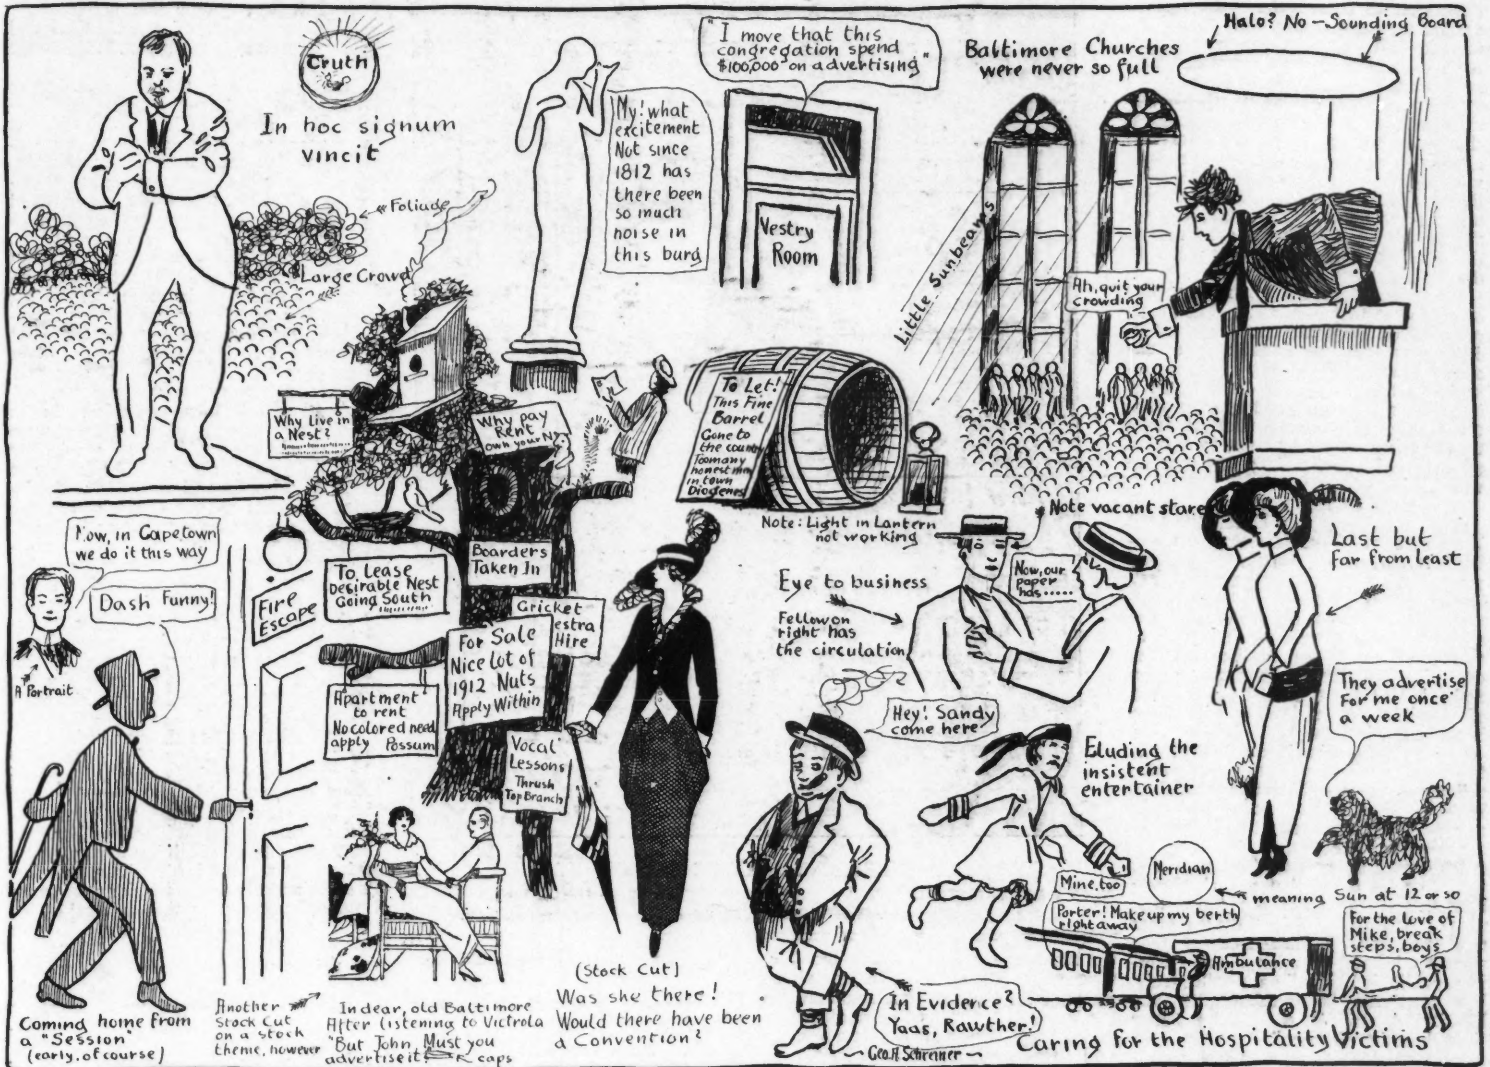 Truth
In hoc signum
vincit
Foliude
Large Crowd
My! what
excitement
Not since
1812 has
there been
so much
noise in
this burg
"I move that this
congregation spend
$100,000 on advertising"
Vestry
Room
Baltimore Churches
were never so full
Halo? No - Sounding Board
Little Sunbeams
Ah, quit your
crowding
Why Live in
a Nest?
Why pay
Rent
own your
To Let!
This Fine
Barrel
Gone to
the country
Too many
honest men
in town
Diogenes
Note: Light in Lantern
not working
Now, in Capetown
we do it this way
Dash Funny!
A Portrait
Fire
Escape
To Lease
Desirable Nest
Going South
Boarders
Taken In
Cricket
estra
Hire
For Sale
Nice lot of
1912 Nuts
Apply Within
Apartment
to rent
No colored need
apply Possum
Vocal
Lessons
Thrush
Top Branch
Note vacant stare
Eye to business
Now, our
paper
has.....
Fellow on
right has
the circulation
Last but
Far from least
They advertise
For me once
a week
Hey! Sandy
come here
Eluding the
insistent
entertainer
Mine, too
Meridian
meaning Sun at 12 or so
Porter! Make up my berth
right away
Ambulance
For the Love of
Mike, break
steps, boys
Caring for the Hospitality Victims
Coming home from
a "Session"
(early, of course)
Another
Stock Cut
on a stock
theme, however
In dear, old Baltimore
After listening to Victrola
"But John, Must you
advertise it
caps
(Stock Cut)
Was she there!
Would there have been
a Convention?
In Evidence?
Yaas, Rawther!
Geo. A. Schreiner